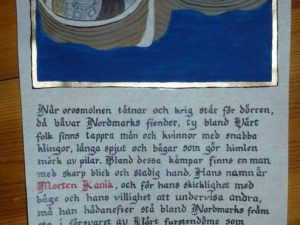 När orosmolnen tätnar och krig står för dörren,
då bävar Nordmarks fiender, ty bland Vårt
folk finns tappra män och kvinnor med snabba
klingor, långa spjut och bågar som gör himlen
mörk av pilar. Bland dessa kämpar finns en man
med skarp blick och stadig hand. Hans namn är
Morten Kanik, och för hans skicklighet med
båge och hans villighet att undervisa andra,
må han hädanefter stå bland Nordmarks främ
sta i försvaret av Vårt furstendöme som